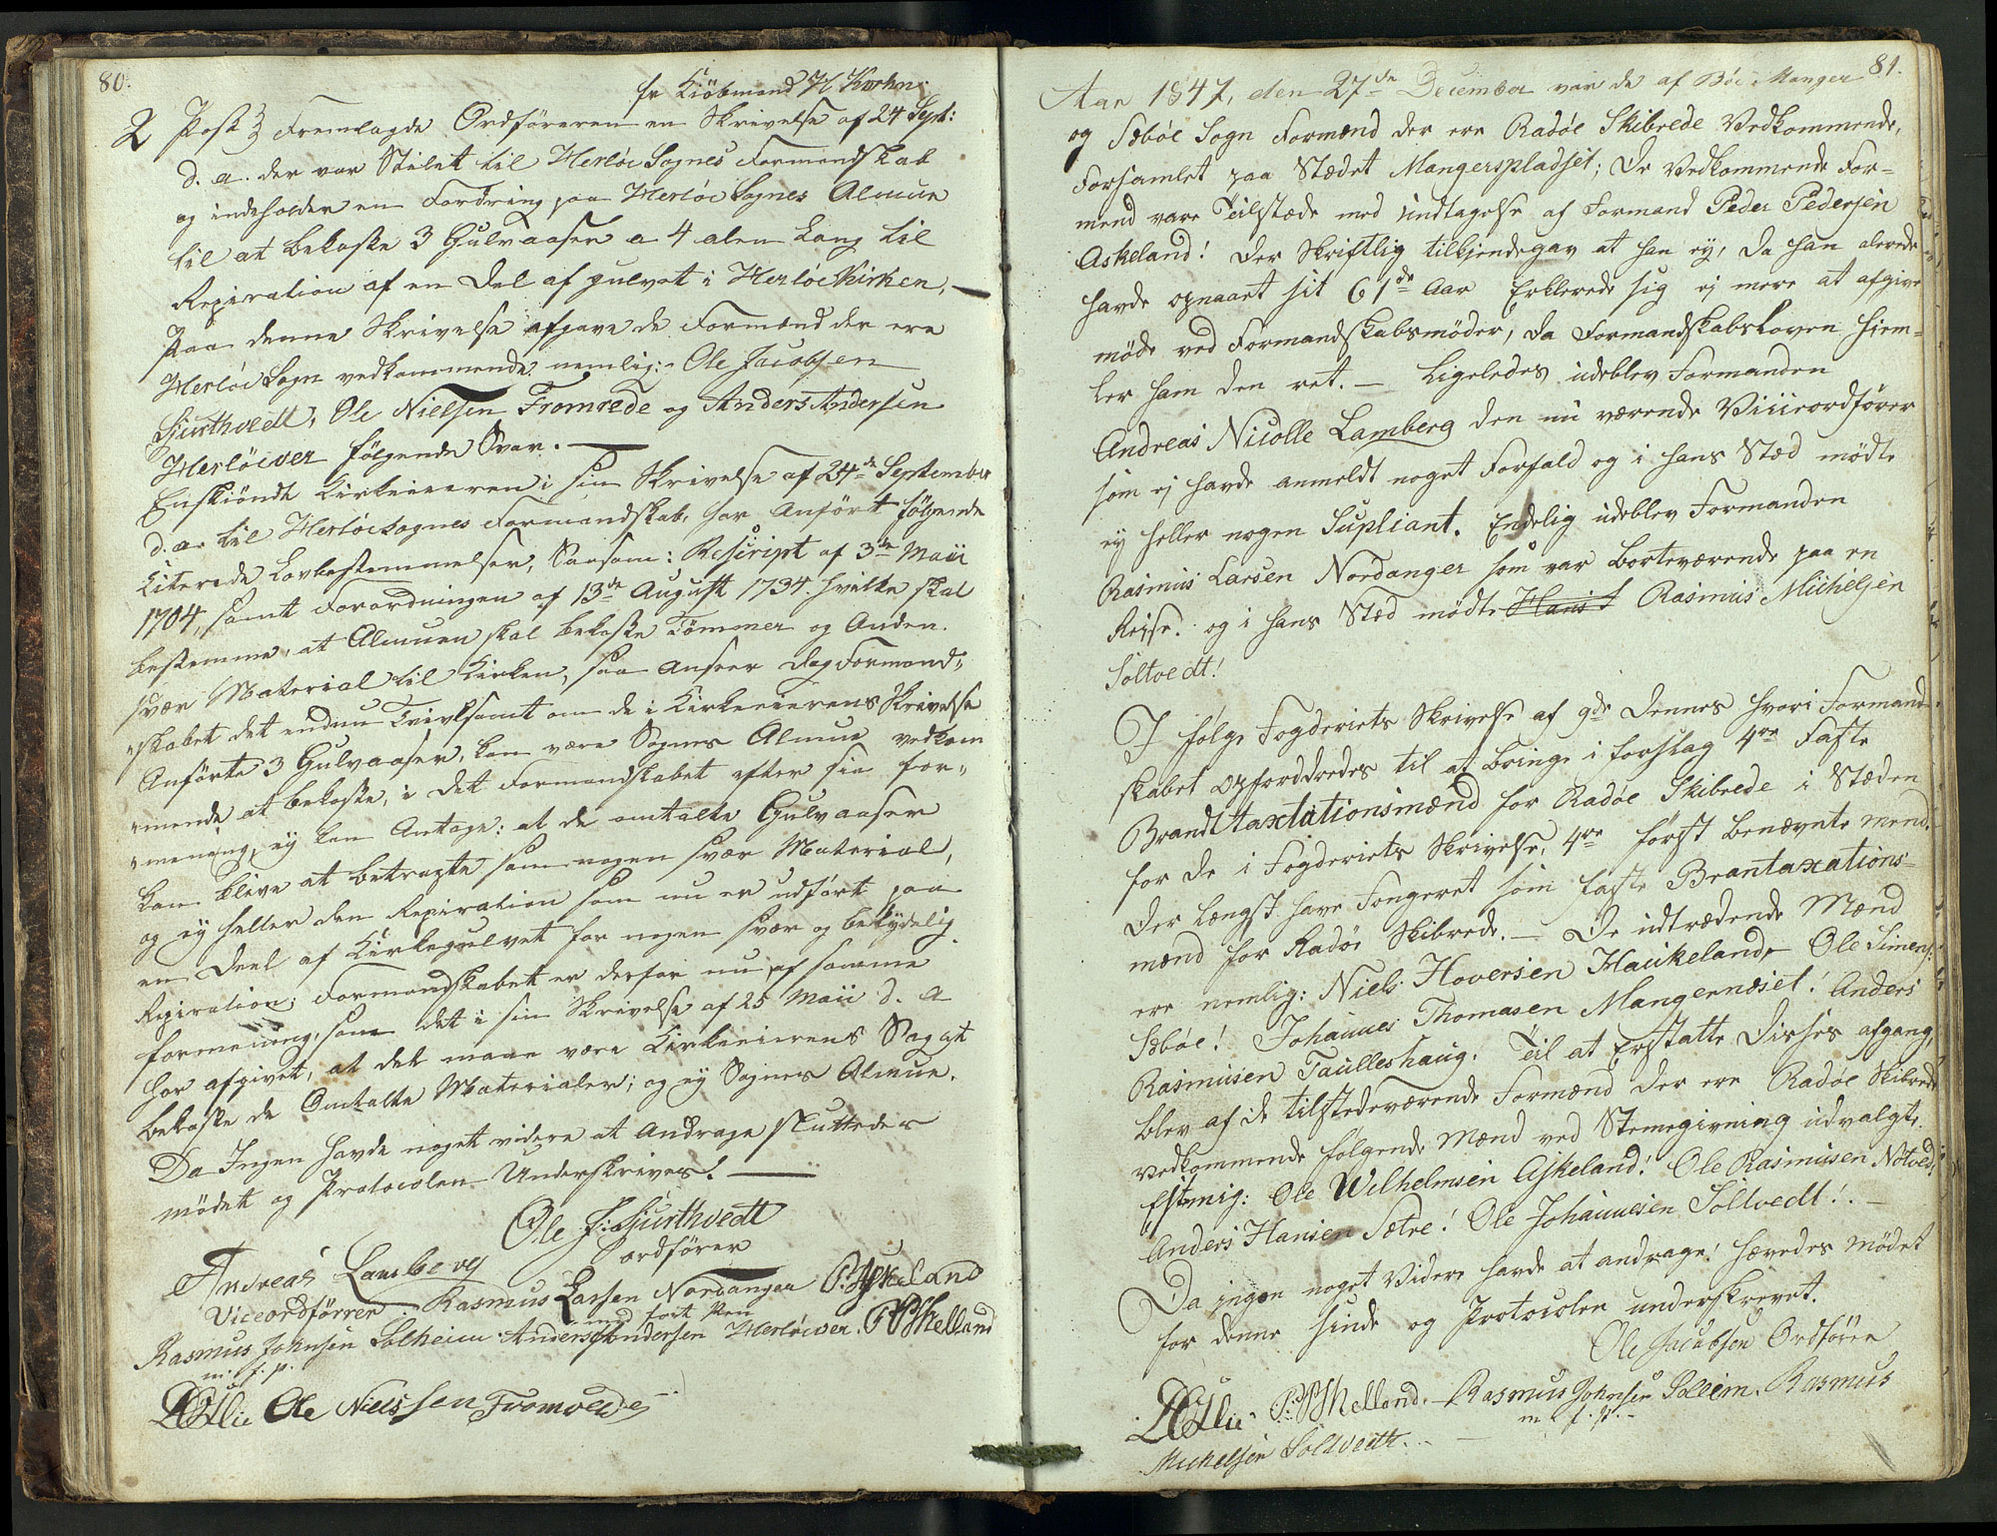 80.
fr Kiöbmand H Krohn
2 Post Fremlagde Ordföreren en Skrivelse af 24 Sept:
d. a. der var Stilet til Herlöe Sognes Formandskab
og indeholder en Fordring paa Herlöe Sognes Almue
til at bekoste 3 Gulvaaser a 4 alen Lang til
Repiration af en Del af gulvet i Herlöe Kirken, —
Paa denne Skrivelse afgave de Formænd der ere
Herlöe Sogn vedkommende nemlig: Ole Jacobsen
Sjurthvedt, Ole Nielsen Fromrede og Anders Andersen
Herlöever følgende Svar. —
Enskiöndt Kirkeieeren i sin Skrivelse af 24de September
d. a. til Herlöe Sognes Formandskab, har Anført følgende
Citerede Lovbestemmelser, Saasom: Rescript af 3de Maii
1704, samt Forordningen af 13de August 1734. hvilke skal
bestemme, at Almuen skal bekoste Tömmer og Anden
svær Material til Kirken, saa anseer dog Formand„
„skabet det endnu Tvivlsomt om de i Kirkeeierens Skrivelse
Anførte 3 Gulvaaser, kan være Sognes Almue vedkom
„mende at bekoste, i det Formandskabet efter sin for„
„mening, ey kan Antage: at de omtalte Gulvaaser
kan blive at betragte som nogen svær Material,
og ey heller den Repiration som nu er udført paa
en Deel af Kirkegulvet for nogen svær og betydelig
Repiration; Formandskabet er derfor nu af samme
formening, som det i sin Skrivelse af 25 Maii d. a
har afgivet, at det maae være Kirkeeierens Sag at
bekoste de Omtalte Materialer; og ey Sognes Almue.
Da Ingen havde noget videre at Andrage sluttedes
mödet og Protocolen Underskrives. —
Ole J: Sjurthvedt
ordförer
Andreas Lamberg
Viceordförrer Rasmus Larsen Nordanger P. Askeland
med fört Pen
Rasmus Johnsen Solheim Anders Andersen Herlöever. P P Helland
m. f. p.
Ole Nielssen Fromreide
81.
Aar 1847, den 27de December var de af Böe Manger
og Sæbøe Sogn Formænd der ere Radøe Skibrede Vedkommende,
Forsamlet paa Stædet Mangerspladset; De Vedkommende For=
mend vare Tilstæde med undtagelse af Formand Peder Pedersen
Askeland! Der Skriftlig tilkjendegav at han ey, da han alerede
havde opnaaet sit 61de Aar Erklerede sig ej mere at afgive
møde ved Formandskabsmöder, da Formandskabsloven hjem=
ler ham den ret. — Ligeledes udeblev Formanden
Andreas Nicolle Lamberg den nu værende Viiceordfører
som ej havde anmeldt noget Forfald og i hans Stæd mødte
ey heller nogen Supliant. Endelig udeblev Formanden
Rasmus Larsen Nordanger som var borteværende paa en
Rejse. og i hans Stæd mødte Hans Rasmus Michelsen
Soltvedt!
I følge Fogderiets Skrivelse af 9de Dennes hvori Formand
skabet opforddredes til at bringe i forslag 4re Faste
Brandttaxtationsmænd for Radøe Skibrede i Stæden
for de i Fogderiets Skrivelse, 4re först benævnte mend.
Der længst have Fongeret som faste Brantaxations=
mænd for Radøe Skibrede. — De udtrædende Mænd
ere nemlig: Niels Hoversen Haukeland, Ole Simens:
Sæbøe! Johannes Thomasen Mangernæset! Anders
Rasmusen Taulleshaug. Til at Erstatte Disses afgang,
blev af de tilstedeværende Formænd der ere Radøe Skibrede
vedkommende følgende Mænd ved Stemegivning udvalgte.
Estemig: Ole Wilhelmsen Askeland! Ole Rasmusen Notvedt
Anders Hansen Sætre! Ole Johannesen Soltvedt! —
Da ingen noget Videre havde at andrage! hævedes mødet
for denne sinde og Protocolen underskrevet.
Ole Jacobsen Ordförer
P: P Helland. Rasmus Johnsen Solleim. Rasmus
m. f. p. -
Michelsen Soltvedt.